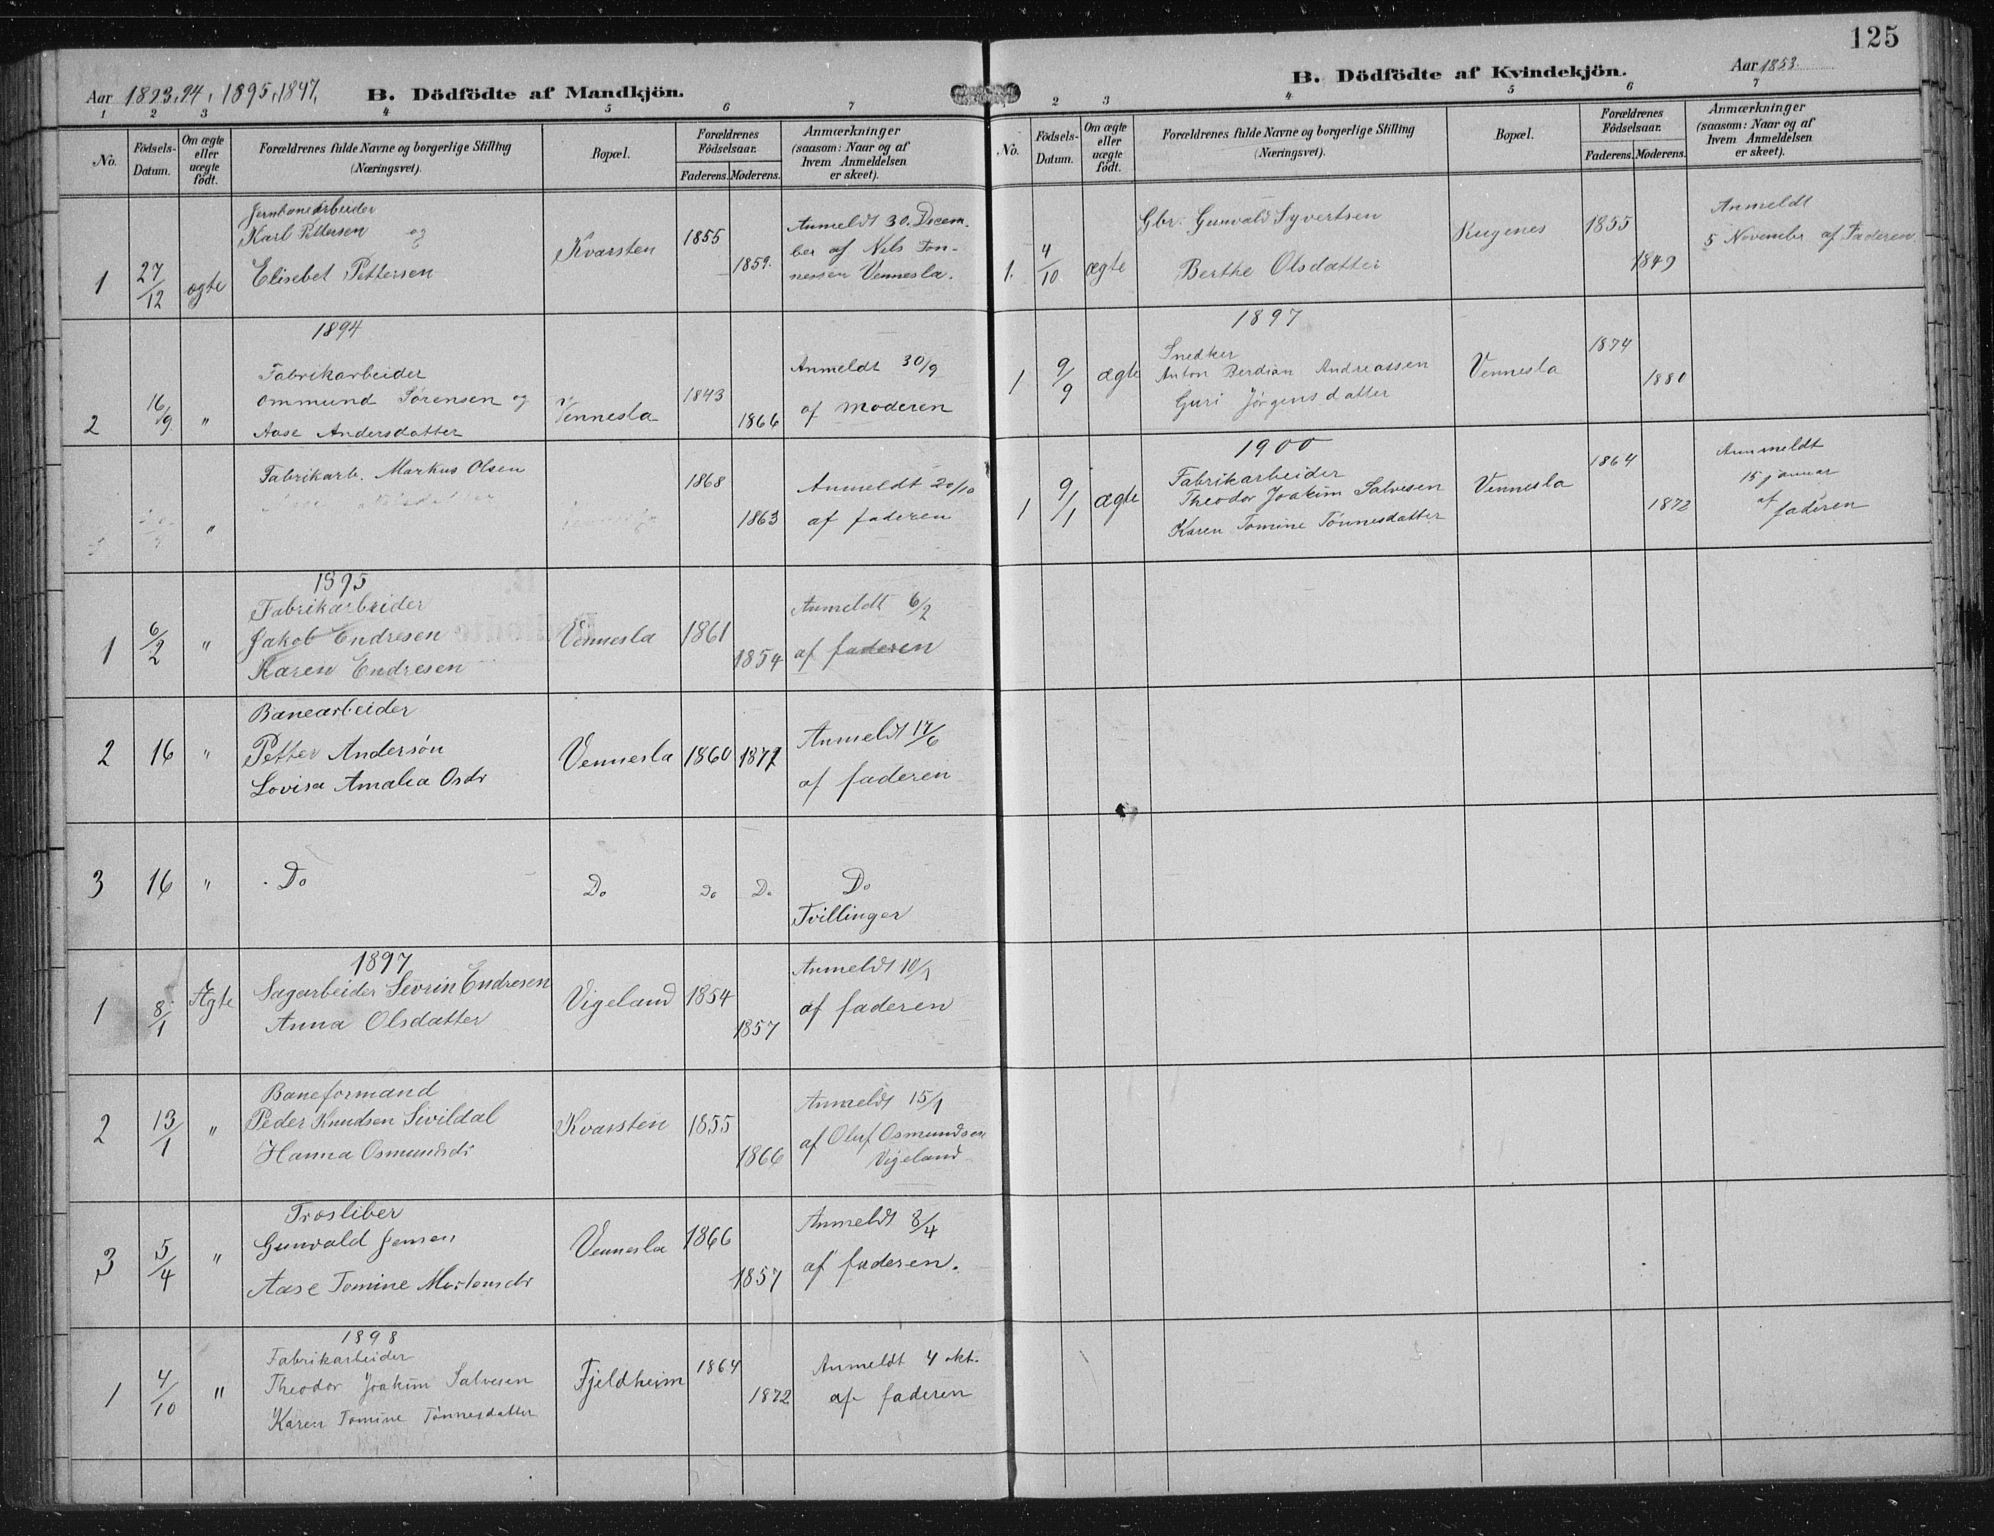 125
Aar 1893, 94, 1895, 1897,
B. Dödfödte af Mandkjön.
1 2 3 4 5 6 7
No.
Födsels-Datum.
Om ægte eller uægte födt.
Forældrenes fulde Navne og borgerlige Stilling (Næringsvei).
Bopæl.
Forældrenes Födselsaar.
Faderens. Moderens.
Anmærkninger (saasom: Naar og af hvem Anmeldelsen er skeet).
1 27/12 ægte
Jernbanearbeider
Karl Pettersen og
Elisebet Pettersen
Kvarsten
1855
1859.
Anmeldt 30. Decem-
ber af Nils Ton-
nessen Vennesla.
1894
2 16/9 "
Fabrikarbeider
Ommund Sörensen og
Aase Andersdatter
Vennesla
1843
1866
Anmeldt 30/9
af moderen
"
Fabrikarb. Markus Olsen
1868
1863
Anmeldt 20/10
af faderen
1895
1 6/2 "
Fabrikarbeider
Jakob Endresen
Karen Endresen
Vennesla
1861
1854
Anmeldt 6/2
af faderen
2 16 "
Banearbeider
Petter Andersön
Lovisa Amalia Osdr
Vennesla
1860 1872
Anmeldt 17/6
af faderen
3 16 "
Do
Do
Do Do
Do
Tvillinger
1897
1 8/1 Ægte
Sagarbeider Sevrin Endresen
Anna Olsdatter
Vigeland
1854
1857
Anmeldt 10/1
af faderen
2 13/1 "
Baneformand
Peder Knudsen Sivildal
Hanna Osmundsdr
Kvarsten
1855
1866
Anmeldt 15/1
af Oluf Osmundsen
Vigeland
3 5/4 "
Træsliber
Gunvald Jensen
Aase Tomine Mortensdr
Vennesla
1866
1857
Anmeldt 8/4
af faderen.
1898
1 4/10 "
Fabrikarbeider
Theodor Joakim Salvesen
Karen Tomine Tönnesdatter
Fjeldheim
1864
1872
Anmeldt 4 okt.
af faderen
B. Dödfödte af Kvindekjön.
Aar 1853.
2 3 4 5 6 7
No.
Födsels-Datum.
Om ægte eller uægte födt.
Forældrenes fulde Navne og borgerlige Stilling (Næringsvei).
Bopæl.
Forældrenes Födselsaar.
Faderens. Moderens.
Anmærkninger (saasom: Naar og af hvem Anmeldelsen er skeet).
1. 4/10 ægte
Gbr. Gunvald Syvertsen
Berthe Olsdatter
Rugenes
1855
1849
Anmeldt
5 November af Faderen
1897
1 9/9 ægte
Snedker
Anton Berdian Andreassen
Guri Jörgensdatter
Vennesla
1874
1880
1900
1 9/1 ægte
Fabrikarbeider
Theodor Joakim Salvesen
Karen Tomine Tönnesdatter
Vennesla
1864
1872
Anmeldt
15 januar
af
faderen